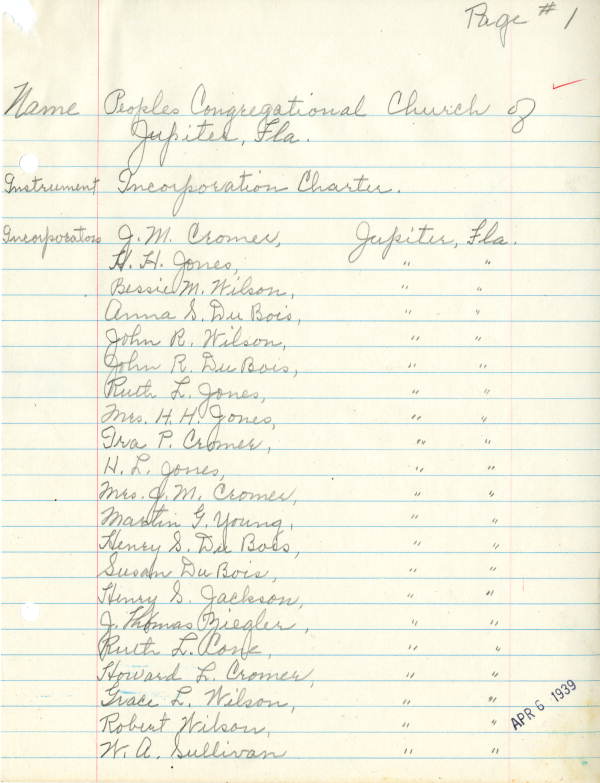 Page # 1
Name Peoples Congregational Church of
Jupiter, Fla.
Instrument Incorporation Charter.
Incorporators J. M. Cromer, Jupiter, Fla.
H. H. Jones, " "
Bessie M. Wilson, " "
Anna S. Du Bois, " "
John R. Wilson, " "
John R. Du Bois, " "
Ruth L. Jones, " "
Mrs. H. H. Jones, " "
Ira P. Cromer, " "
H. L. Jones, " "
Mrs. J. M. Cromer, " "
Martin G. Young, " "
Henry S. Du Bois, " "
Susan Du Bois, " "
Henry S. Jackson, " "
J. Thomas Ziegler, " "
Ruth L. Cone, " "
Howard L. Cromer, " "
Grace L. Wilson, " "
Robert Wilson, " "
W. A. Sullivan " "
APR 6 1939